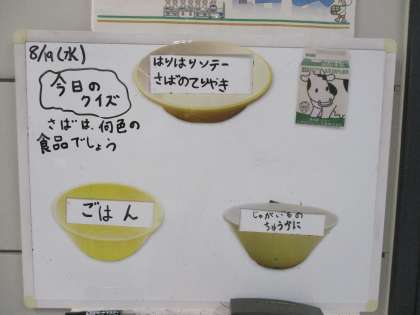 8/19(水)
今日の
クイズ
さばは、何色の
食品でしょう
はりはりソテー
さばのてりやき
ごはん
じゃがいもの
ちゅうかに